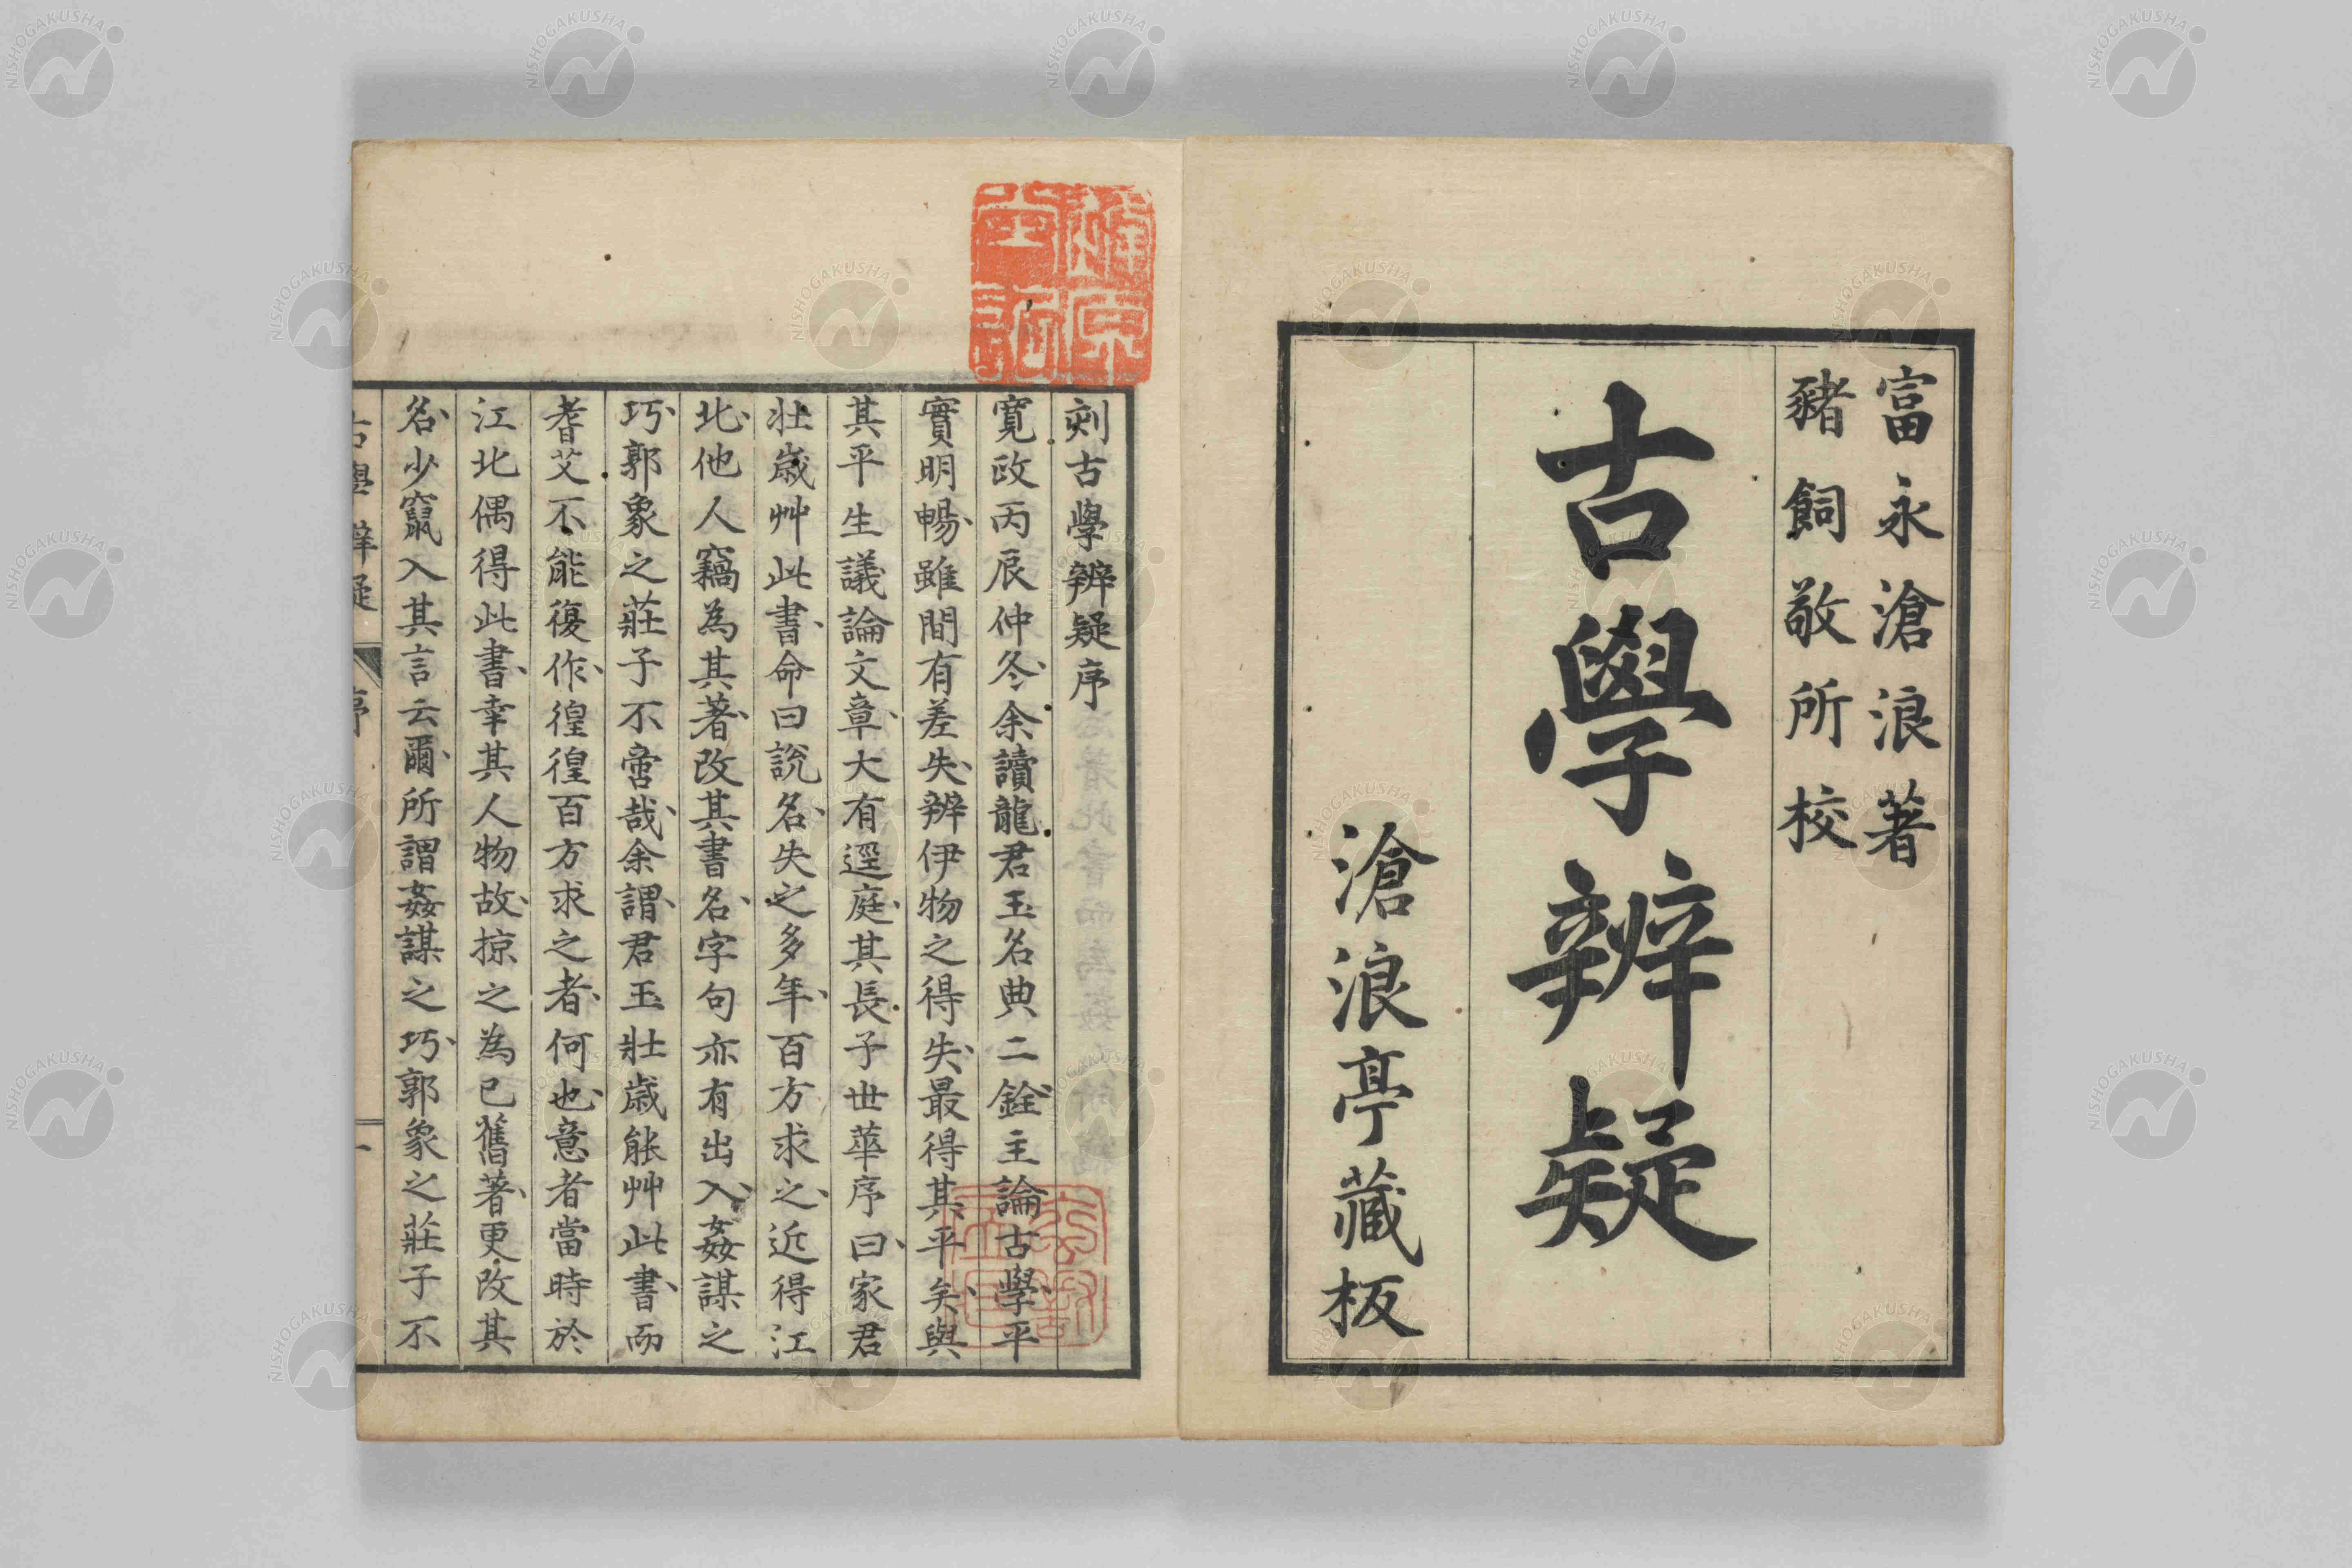 富永滄浪著
豬飼敬所校
古學辨疑
滄浪亭藏板
刻古學辨疑序
寬政丙辰仲冬余讀龍君玉名典二銓主論古學平
實明暢雖間有差失辨伊物之得失最得其平矣與
其平生議論文章大有逕庭其長子世華序曰家君
壯歲艸此書命曰說名失之多年百方求之近得江
北他人竊為其著改其書名字句亦有出入姦謀之
巧郭象之莊子不啻哉余謂君玉壯歲能艸此書而
耆艾不能復作徨徨百方求之者何也意者當時於
江北偶得此書幸其人物故掠之為已舊著更改其
名少竄入其言云爾所謂姦謀之巧郭象之莊子不
古學辨疑 序 一
NISHOGAKUSHA